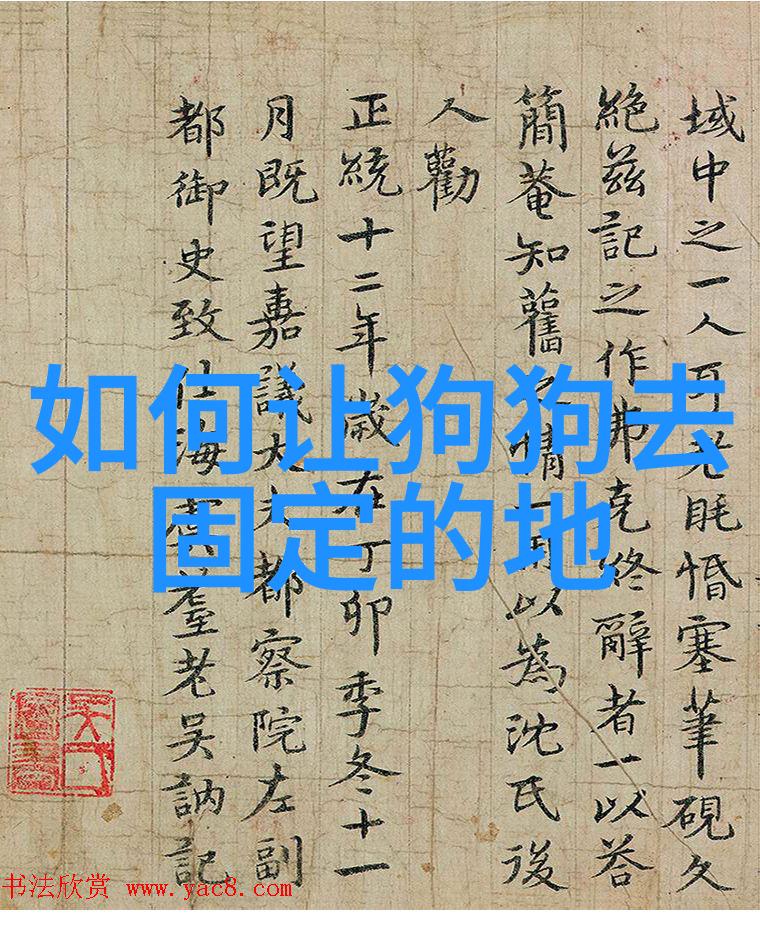 如何让狗狗去
固定的地
域中之一人耳老眊惛塞筆硯久
絶兹記之作弗克終辭者一以荅
簡菴知舊之情一用以為沈氏後
人勸
正統十二年歲在丁卯季冬十一
月既望嘉議大夫都察院左副
都御史致仕海虞耋老吳訥記
书法欣赏 www.yac8.com